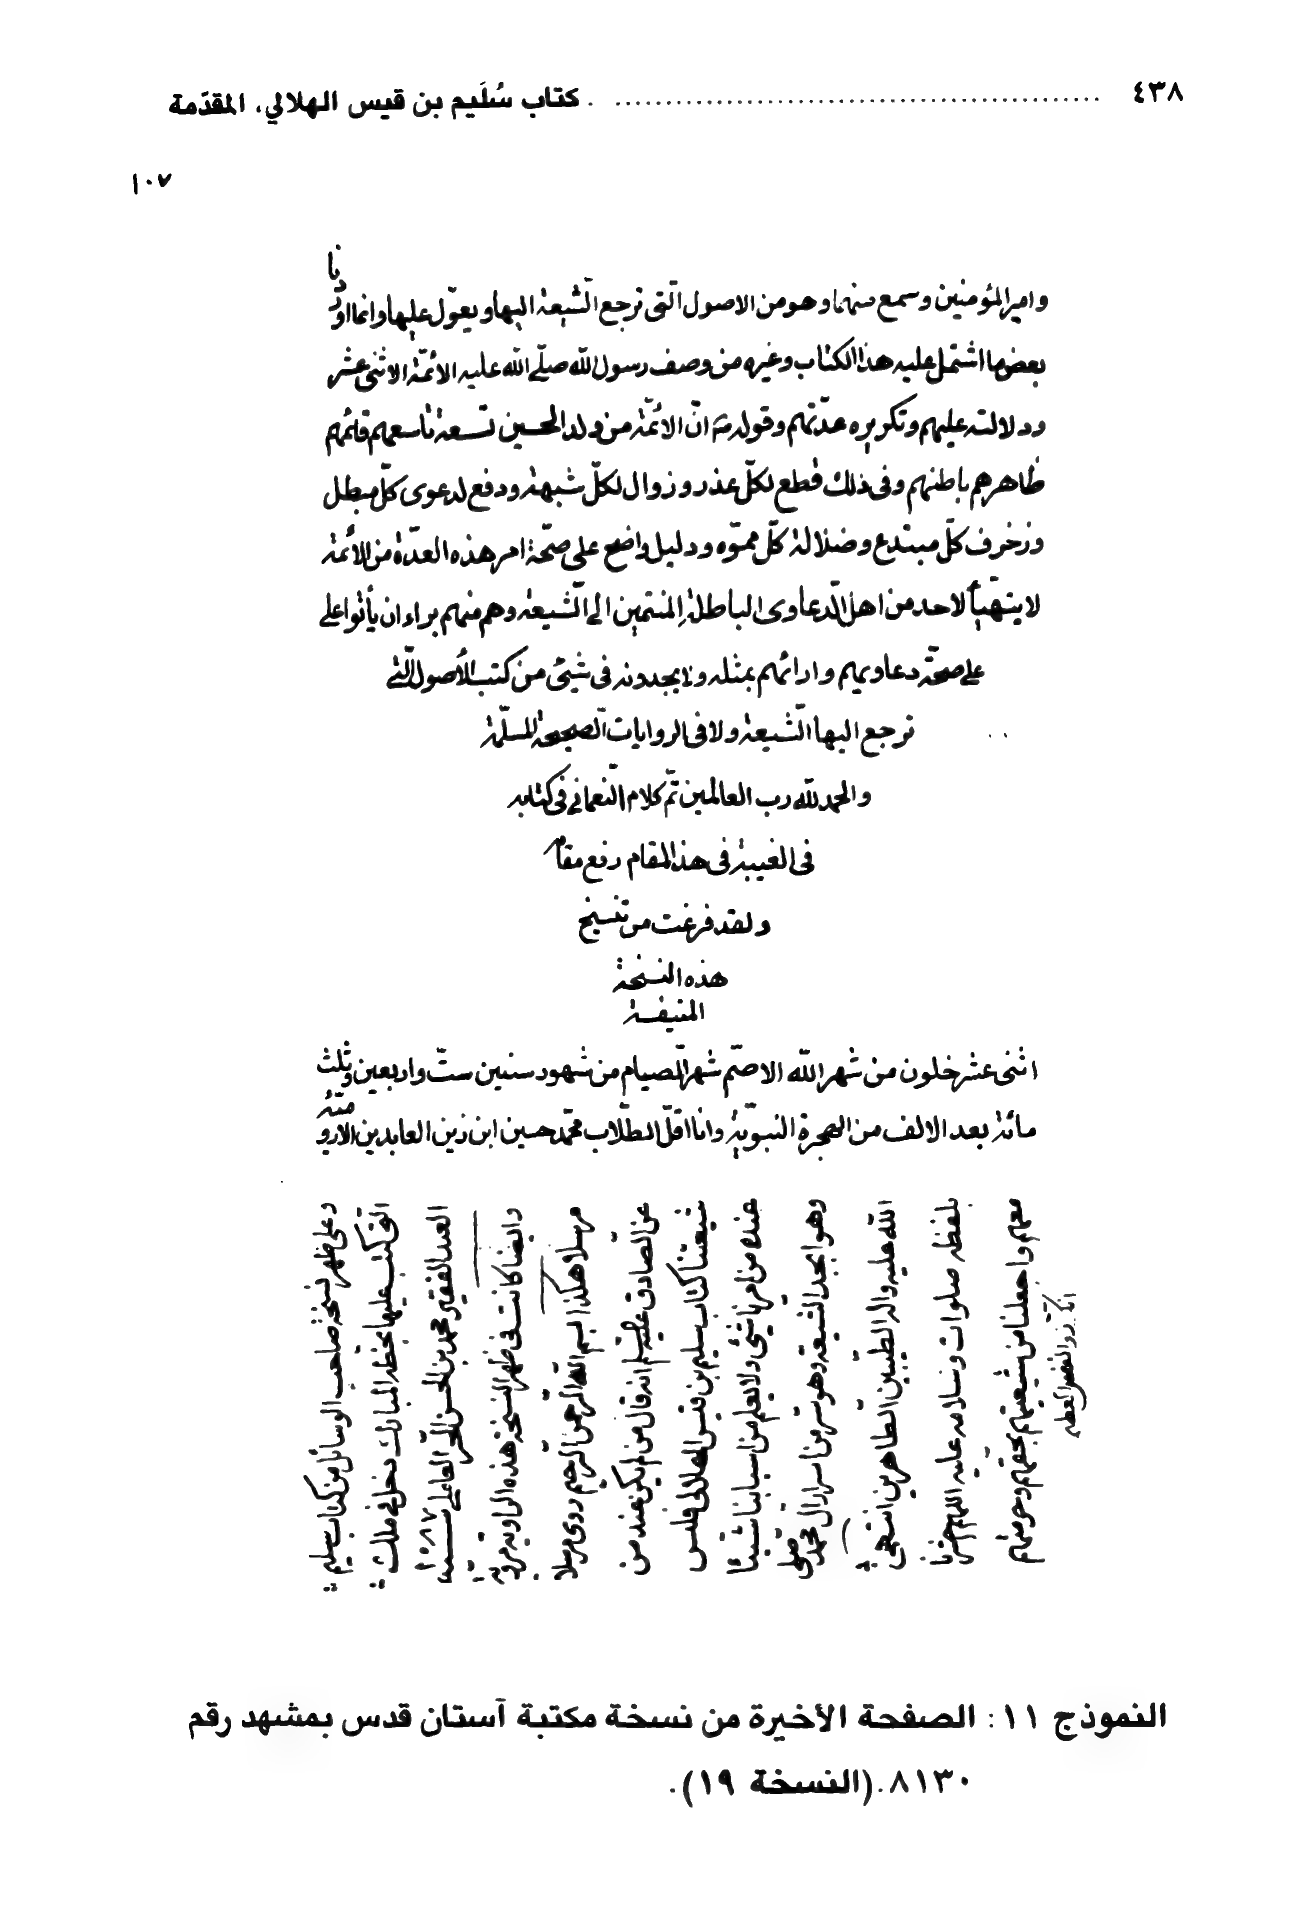 ٤٣٨ كتاب سُلَيم بن قيس الهلالي، المقدّمة
١٠٧
وامير المؤمنين وسمع منهما وهو من الاصول الّتى ترجع الّشيعة اليها ويعوّل عليها وانما اوردنا
بعض ما اشتمل عليه هذا الكتاب وغيره من وصف رسول الله صلّى الله عليه الائمّة الاثنى عشر
ودلالته عليهم وتكريره عدّتهم وقوله انّ الائمّة من ولد الحسين تسعة تاسعهم قائمهم
ظاهرهم باطنهم وفى ذلك قطع لكلّ عذر وزوال لكلّ شبهة ودفع لدعوى كلّ مبطل
وزخرف كلّ مبتدع وضلالة كلّ مموّه ودليل واضح على صحّة امر هذه العدّة من الائمة
لا يتهيّأ لاحد من اهل الّدعاوى الباطلة المنتمين الى الّشيعة وهم منهم براء ان يأتوا على
على صحّة دعاويهم وارائهم بمثله ولا يجدونه فى شئ من كتب الأصول الّتى
ترجع اليها الّشيعة ولا فى الروايات الّصحيحة المسلّمة
والحمد لله رب العالمين تمّ كلام الّنعمانى فى كتابه
فى الغيبة فى هذا المقام رفع مقامه
ولقد فرغت من تنسيخ
هذه النسخة
المنيفة
اثنى عشر خلون من شهر الله الاصمّ شهر الّصيام من شهود سنين ستّ واربعين وثلث
مائة بعد الالف من الهجرة النبويّة وانا اقلّ الطلّاب محمّد حسين ابن زين العابدين
وعلى ظهر نسخة صاحب الوسائل من كتاب سليم
التى كتب عليها بخطه المبارك دخل فى ملك
العبد الفقير محمد بن الحسن الحرّ العاملى سنة ١٠٨٧
وايضا كانت فى ظهر النسخة هذه الرواية مروية
مرسلا هكذا بسم الله الرحمن الرحيم روى مرسلا
عن الصادق انه قال من لم يكن عنده من
شيعتنا كتاب سليم بن قيس الهلالى فليس
عنده من امرنا شئ ولا يعلم من اسبابنا شيئا
وهو ابجد الشيعة وهو سر من اسرار ال محمد صلى
الله عليه واله الطيبين الطاهرين انتهى
بلفظه صلوات وسلامه عليه اللهم احشرنا
معهم واجعلنا من شيعتهم بحقهم وحرمتهم
انك ذو الفضل العظيم
النموذج ١١: الصفحة الأخيرة من نسخة مكتبة آستان قدس بمشهد رقم
٨١٣٠. (النسخة ١٩).